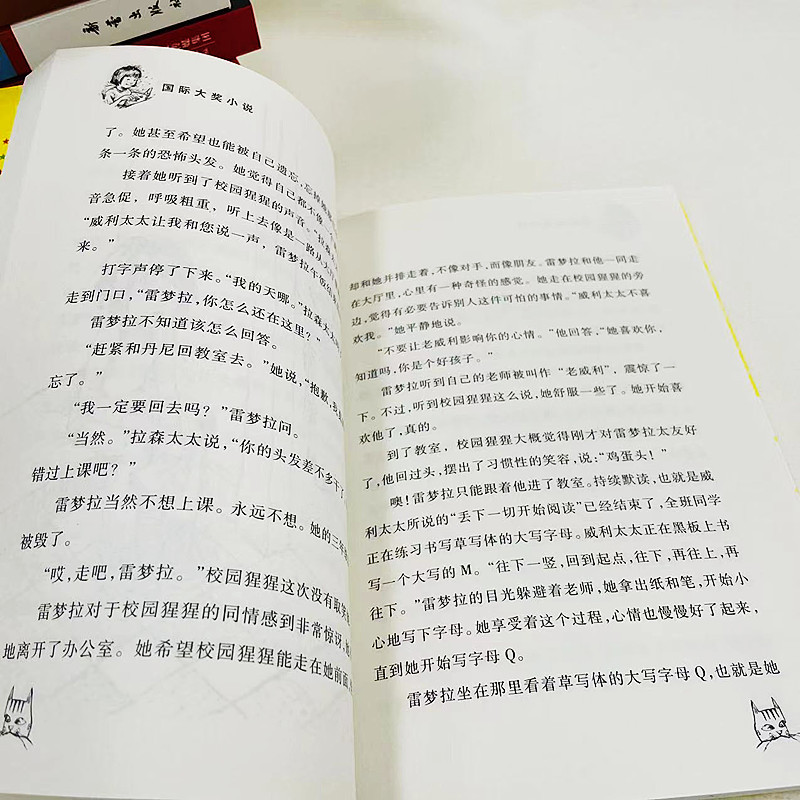 新蕾出版社
国际大奖小说
了。她甚至希望也能被自己遗忘,忘掉
条一条的恐怖头发。她觉得自己都不像一个
接着她听到了校园猩猩的声音。“拉森
音急促,呼吸粗重,听上去像是一路从大厅
“威利太太让我和您说一声,雷梦拉午饭
来。”
打字声停了下来。“我的天哪。”拉森太太
走到门口,“雷梦拉,你怎么还在这里?”
雷梦拉不知道该怎么回答。
“赶紧和丹尼回教室去。”她说,“抱歉,我
忘了。”
“我一定要回去吗?”雷梦拉问。
“当然。”拉森太太说,“你的头发差不多干了
错过上课吧?”
雷梦拉当然不想上课。永远不想。她的三年
被毁了。
“哎,走吧,雷梦拉。”校园猩猩这次没有
雷梦拉对于校园猩猩的同情感到非常惊讶,
地离开了办公室。她希望校园猩猩能走在她前面,
却和她并排走着,不像对手,而像朋友。雷梦拉和他一同走
在大厅里,心里有一种奇怪的感觉。她走在校园猩猩的旁
边,觉得有必要告诉别人这件可怕的事情。“威利太太不喜
欢我。”她平静地说。
“不要让老威利影响你的心情。”他回答,“她喜欢你,
知道吗,你是个好孩子。”
雷梦拉听到自己的老师被叫作“老威利”,震惊了一
下。不过,听到校园猩猩这么说,她舒服一些了。她开始喜
欢他了,真的。
到了教室,校园猩猩大概觉得刚才对雷梦拉太友好
了,他回过头,摆出了习惯性的笑容,说:“鸡蛋头!”
噢!雷梦拉只能跟着他进了教室。持续默读,也就是威
利太太所说的“丢下一切开始阅读”已经结束了,全班同学
正在练习书写草写体的大写字母。威利太太正在黑板上书
写一个大写的 M。“往下一竖,回到起点,往下,再往上,再
往下。”雷梦拉的目光躲避着老师,她拿出纸和笔,开始小
心地写下字母。她享受着这个过程,心情也慢慢好了起来,
直到她开始写字母 Q。
雷梦拉坐在那里看着草写体的大写字母 Q,也就是她